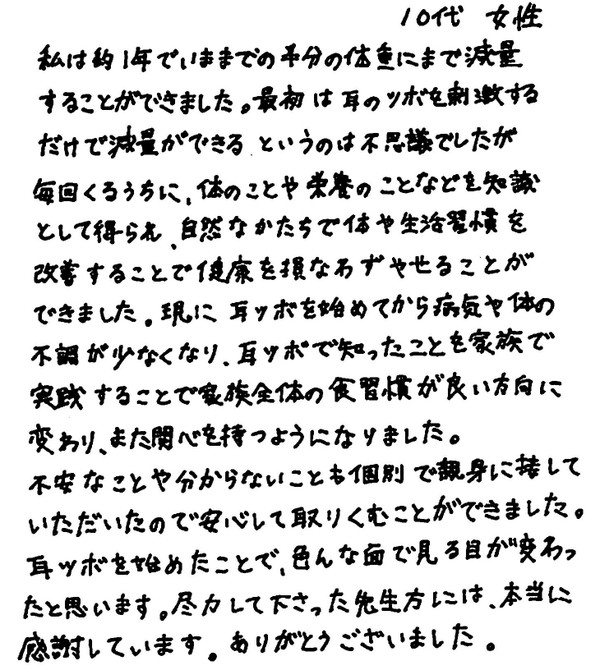 10代 女性
私は約1年でいままでの半分の体重にまで減量
することができました。最初は耳のツボを刺激する
だけで減量ができるというのは不思議でしたが
毎回くるうちに、体のことや栄養のことなどを知識
として得られ、自然なかたちで体や生活習慣を
改善することで健康を損なわずやせることが
できました。現に耳ツボを始めてから病気や体の
不調が少なくなり、耳ツボで知ったことを家族で
実践することで家族全体の食習慣が良い方向に
変わり、また関心を持つようになりました。
不安なことや分からないことも個別で親身に接して
いただいたので安心して取りくむことができました。
耳ツボを始めたことで、色んな面で見る目が変わっ
たと思います。尽力して下さった先生方には、本当に
感謝しています。ありがとうございました。